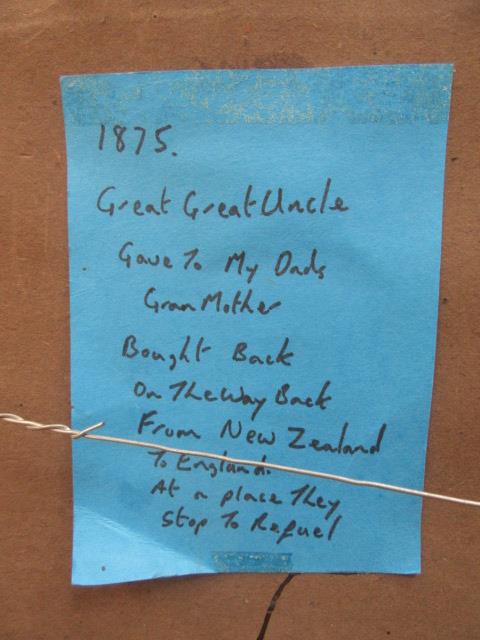 1875.
Great Great Uncle
Gave To My Dads
Gran Mother
Bought Back
On The Way Back
From New Zealand
To England.
At a place They
Stop To Refuel